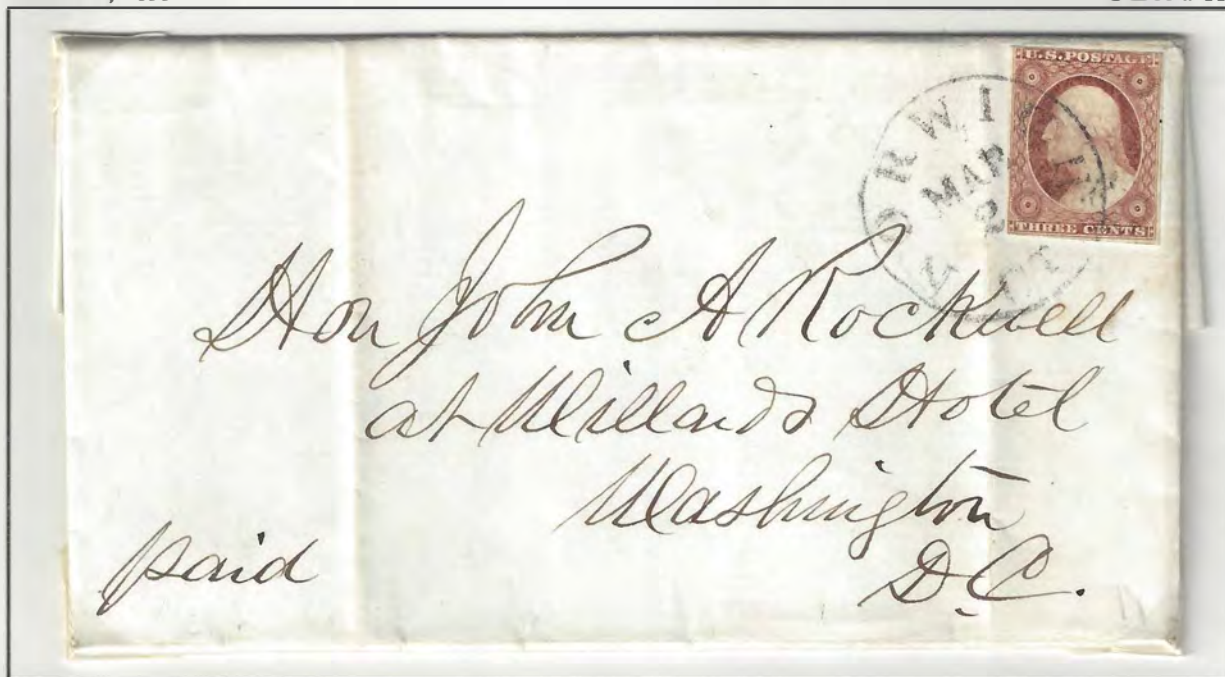 U.S. POSTAGE
THREE CENTS
NORWI
MAR
CT
Hon John A Rockwell
at Willards Hotel
Washington
D.C.
paid